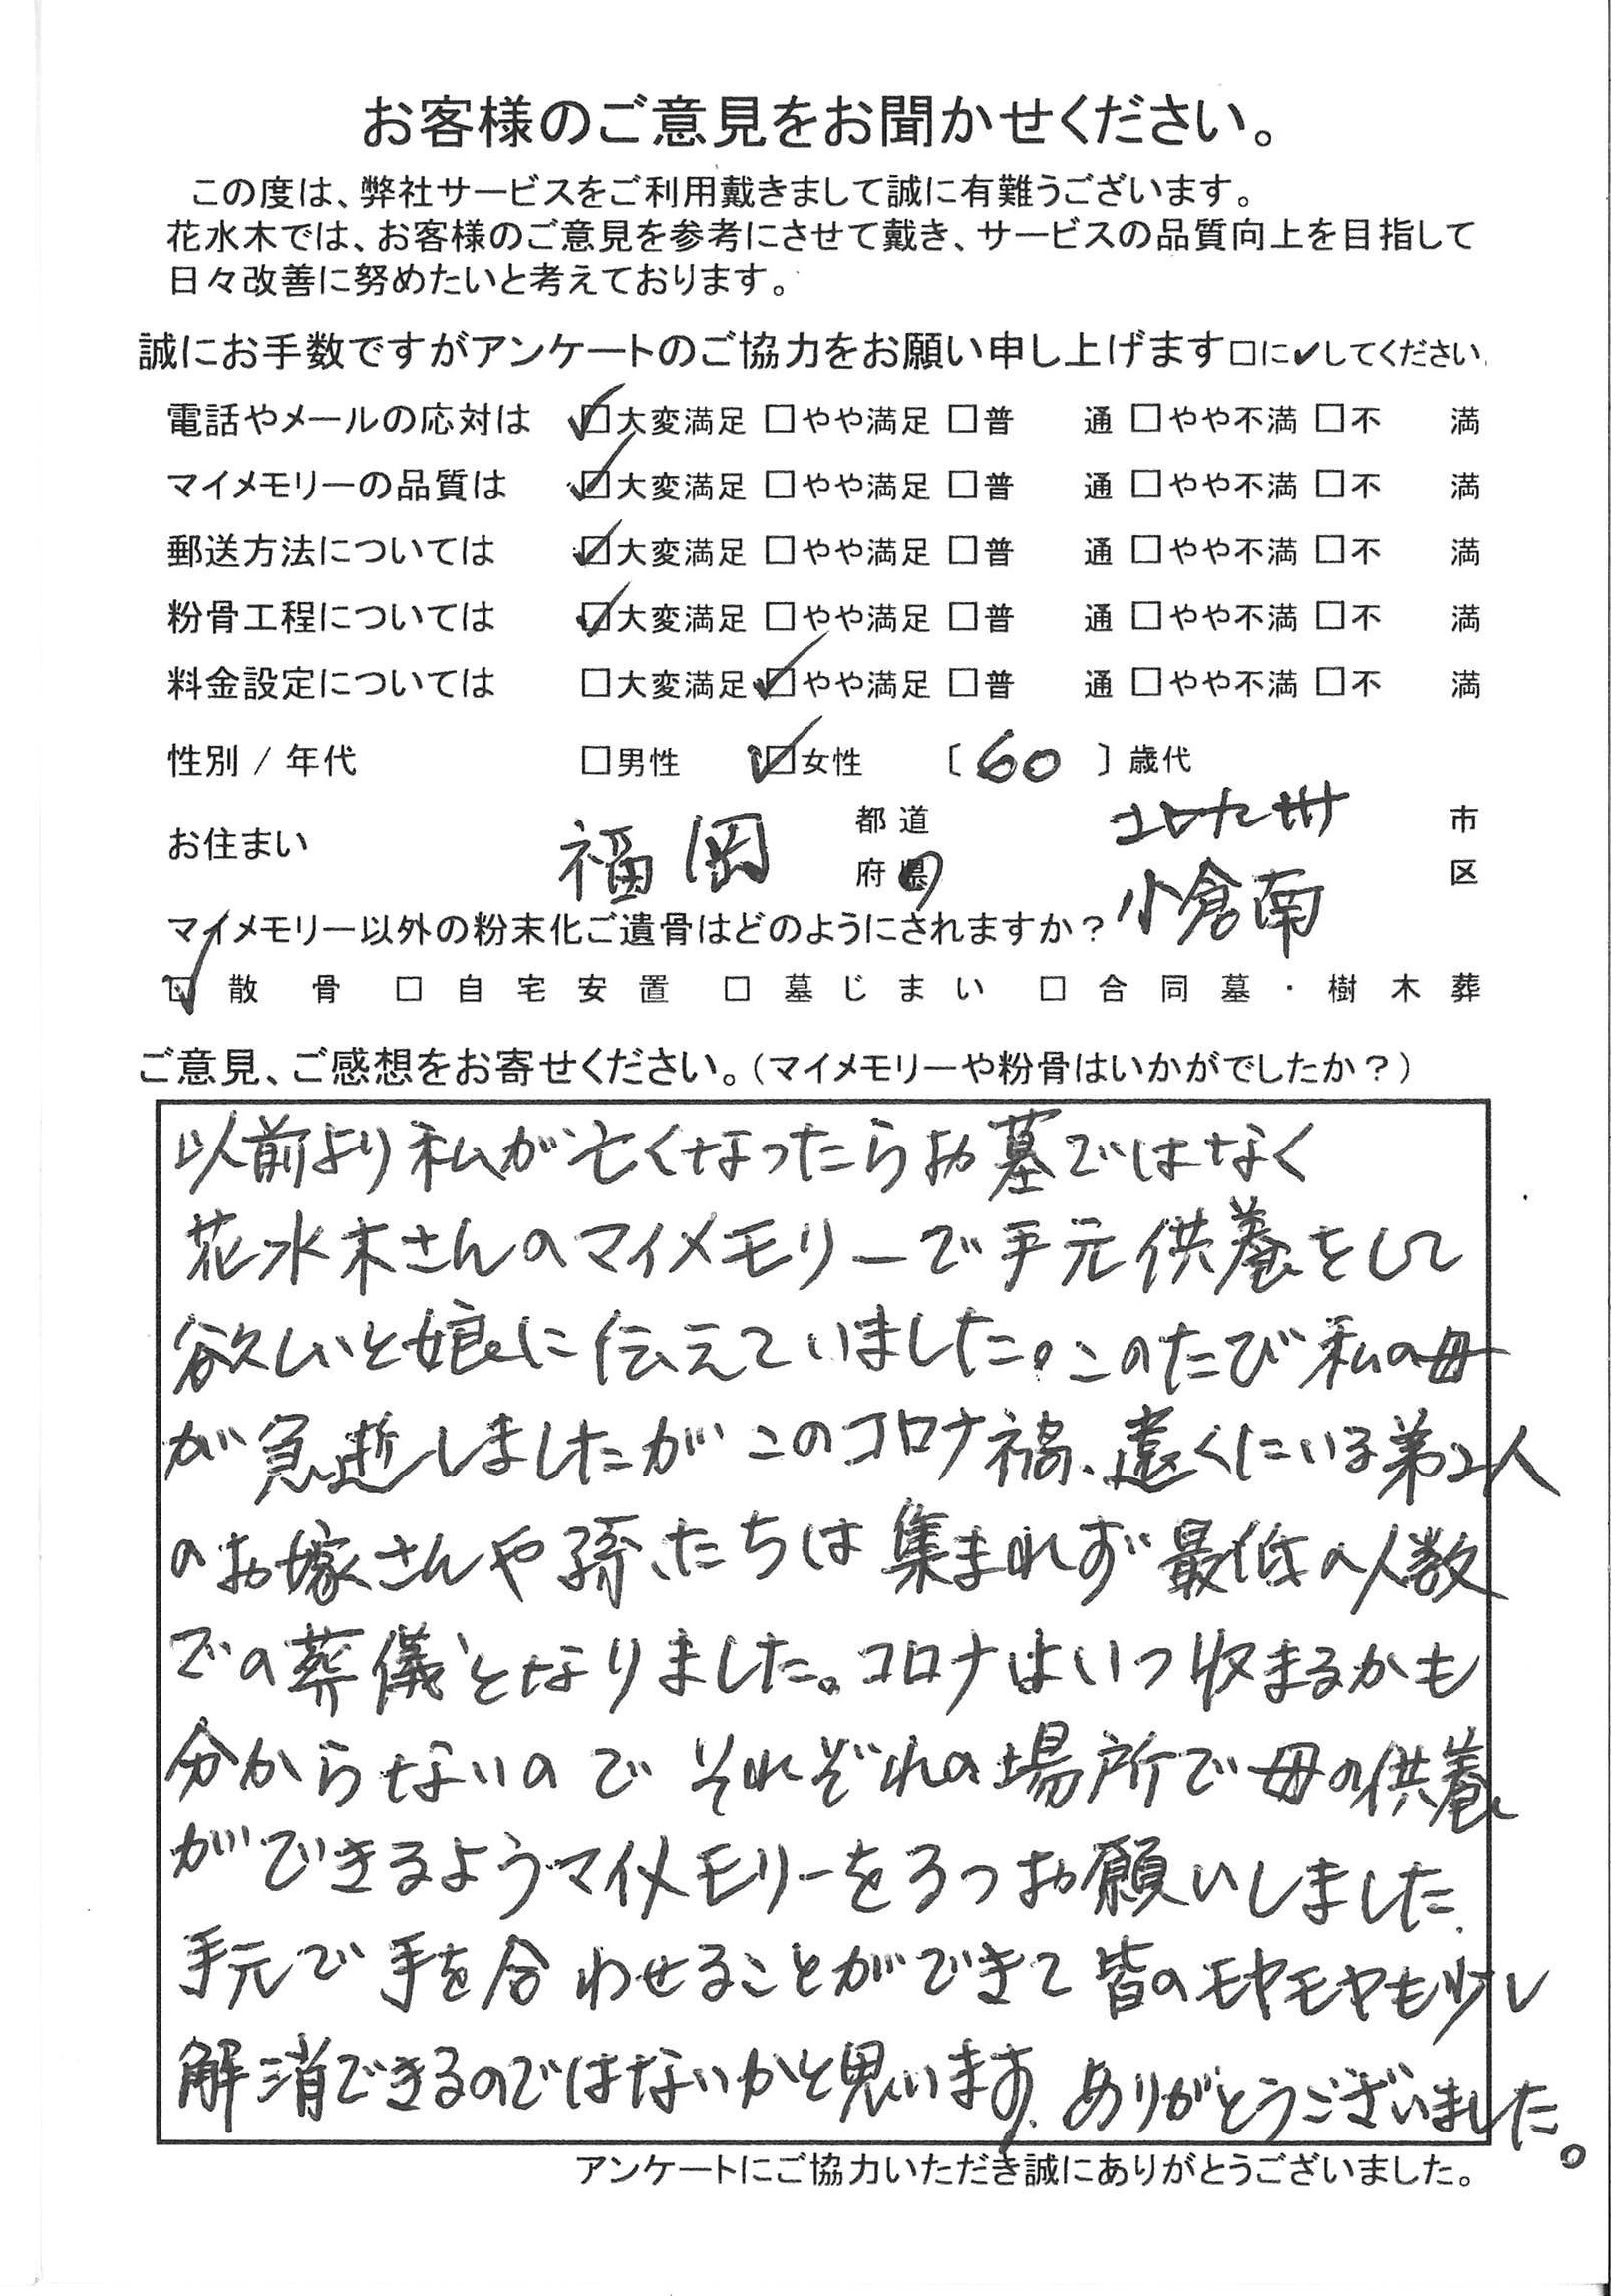 お客様のご意見をお聞かせください。
この度は、弊社サービスをご利用戴きまして誠に有難うございます。
花水木では、お客様のご意見を参考にさせて戴き、サービスの品質向上を目指して
日々改善に努めたいと考えております。
誠にお手数ですがアンケートのご協力をお願い申し上げます□に✔してください
電話やメールの応対は ☑大変満足 □やや満足 □普 通 □やや不満 □不 満
マイメモリーの品質は ☑大変満足 □やや満足 □普 通 □やや不満 □不 満
郵送方法については ☑大変満足 □やや満足 □普 通 □やや不満 □不 満
粉骨工程については ☑大変満足 □やや満足 □普 通 □やや不満 □不 満
料金設定については □大変満足 ☑やや満足 □普 通 □やや不満 □不 満
性別 / 年代 □男性 ☑女性 〔 60 〕歳代
お住まい 福岡 都道府県 北九州 市
小倉南 区
マイメモリー以外の粉末化ご遺骨はどのようにされますか?
☑散骨 □自宅安置 □墓じまい □合同墓・樹木葬
ご意見、ご感想をお寄せください。(マイメモリーや粉骨はいかがでしたか?)
以前より私が亡くなったらお墓ではなく
花水木さんのマイメモリーで手元供養をして
欲しいと娘に伝えていました。このたび私の母
が急逝しましたがこのコロナ禍、遠くにいる弟2人
のお嫁さんや孫たちは集まれず最低の人数
での葬儀となりました。コロナはいつ収まるかも
分からないのでそれぞれの場所で母の供養
ができるようマイメモリーを3つお願いしました.
手元で手を合わせることができて皆のモヤモヤも少し
解消できるのではないかと思います.ありがとうございました。
アンケートにご協力いただき誠にありがとうございました。